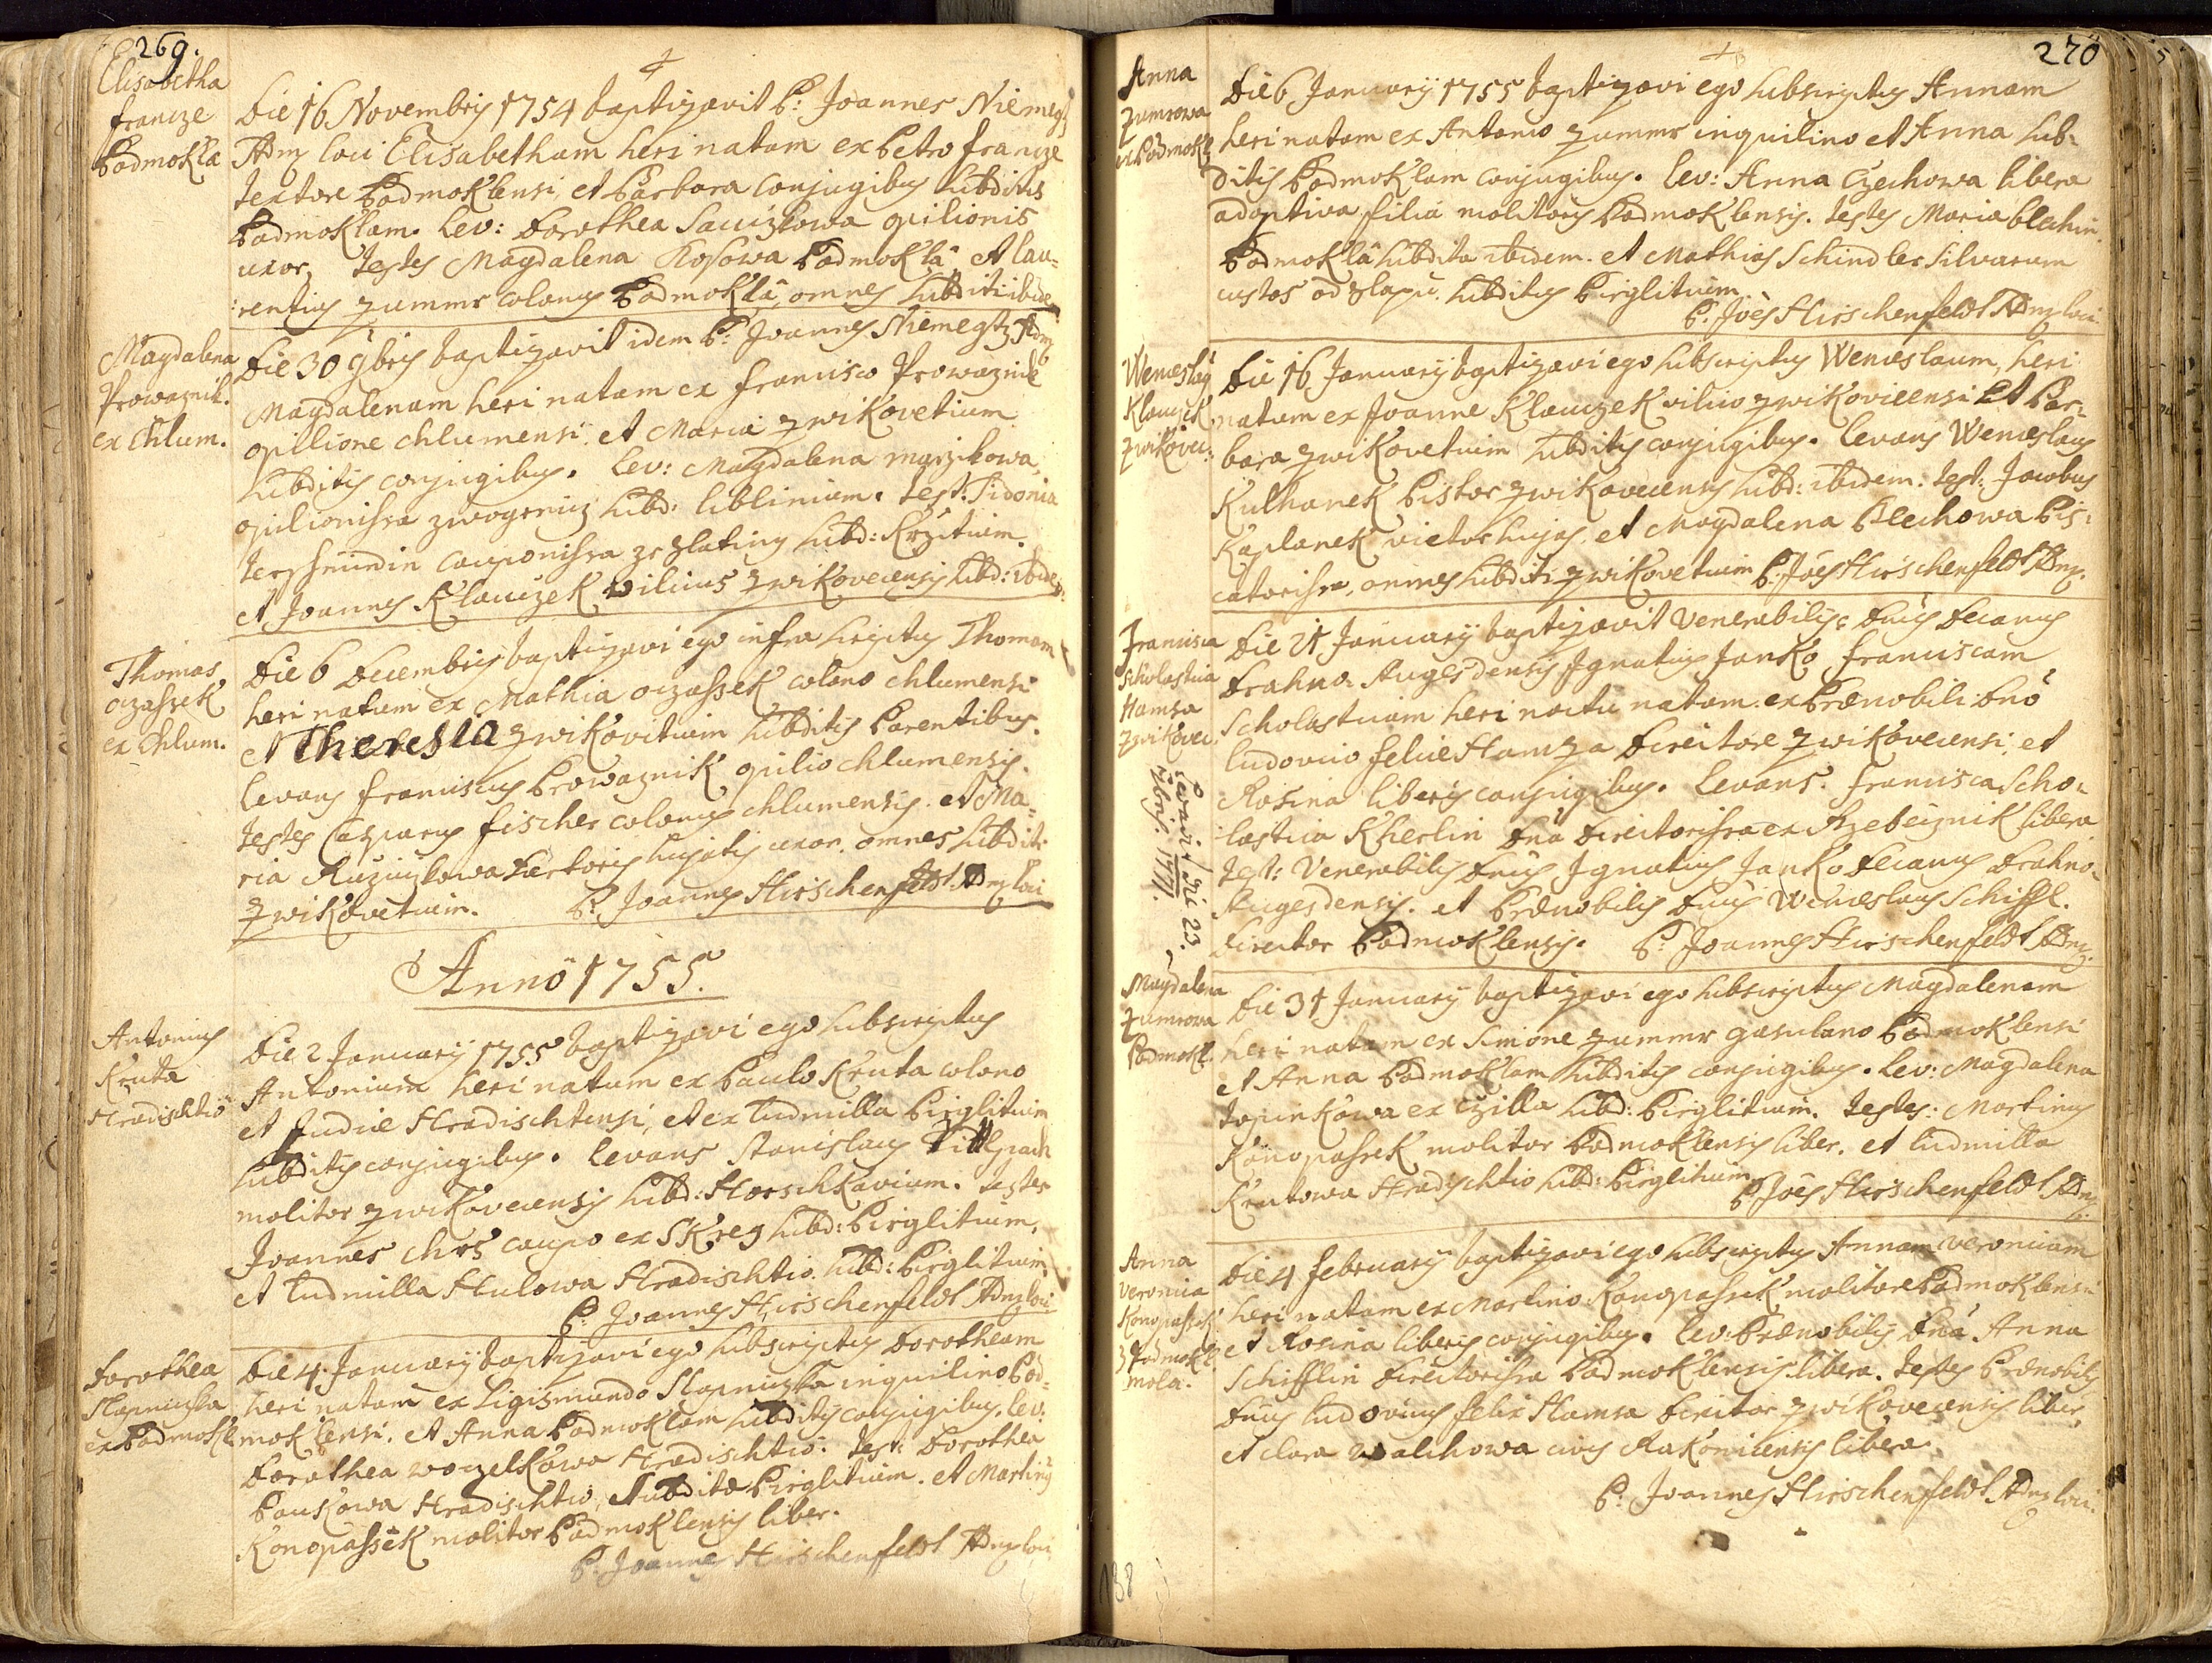 269.
Elisabetha
francze
Podmokla
Die 16 Novembris 1754 baptizavit P: Joannes Niemegtz
Admr loci Elisabetham heri natam ex Petro francze
textore Podmoklensi et Barbara conjugibus subditis
Podmoklam. Lev: Dorothea opilionis
uxor. testes Magdalena Kosowa Podmokla et lau=
rentius zummr colonus Podmokla, omnes subditi ibidem
Magdalena
Prowaznik.
ex Chlum.
Die 30 9bris baptizavit idem P: Joannes Niemegtz Admr
Magdalenam heri natam ex francisco Prowaznik
opilione chlumensi, et Maria zwikovetium
subditis conjugibus. Lev: Magdalena marzikowa,
opilionissa zwogeniz subd: liblinium. Test: Sidonia
cauponissa ze zlatiny subd: Krzitium.
et Joannes Klauczek vilicus zwikovecensis subd: ibidem
Thomas
oczassek
ex Chlum.
Die 6 Decembris baptizavi ego infra scriptus Thomam
heri natum ex Mathia oczassek colono chlumensi
et Theresia zwikovitium subditis Parentibus.
Levans franciscus Prowaznik opilio chlumensis.
testes Casparus fischer colonus chlumensis. et Ma=
ria sartoris hujatis uxor. omnes subditi
zwikovetium. P: Joannes Hirschenfeldt Admr loci
Anno 1755.
Antonius
Kruta
Hradischtio
Die 2 January 1755 baptizavi ego subscriptus
Antonium heri natum ex Paulo Kruta colono
et Judice Hradischtensi, et ex Ludmilla Pirglitium
subditis conjugibus. Levans Stanislaus Tittlpach
molitor zwikovecensis subd: Horschkavium. testes
Joannes chrs caupo ex Skreg subd: Pirglitium,
et Ludmilla Hulowa Hradischtio subd: Pirglitium
P: Joannes Hirschenfeldt Admr loci
Dorothea
Slapniczka
ex Podmokl
Die 4 January baptizavi ego subscriptus Dorotheam
heri natam ex Sigismundo Slapniczka inquilino Pod=
moklensi. et Anna Podmoklam subditis conjugibus. Lev:
Dorothea woczelkowa Hradischtio. Test: Dorothea
Paukowa Hradischtio, subditae Pirglitium. et Martinus
Konopassek molitor Podmoklensis liber.
P: Joannes Hirschenfeldt Admr loci
270
Anna
zumrowa
ex Podmokl
Die 6 January 1755 baptizavi ego subscriptus Annam
heri natam ex Antonio zummr inquilino et Anna sub=
ditis Podmoklam conjugibus. Lev: Anna Czechowa libera
adoptiva filia molitoris Podmoklensis. testes Maria blahin
Podmokla subdita ibidem. et Mathias Schindler silvarum
custos od slapu. subditus Pirglitium.
P: Joes Hirschenfeldt Admr loci.
Wenceslaus
Klauczek
zwikovec:
Die 16 January baptizavi ego subscriptus Wenceslaum, heri
natum ex Joanne Klauczek vilico zwikovicensi et Bar=
bara zwikovetium subditis conjugibus. Levans Wenceslaus
Kulhanek Pistor zwikovecensis subd: ibidem. test: Jacobus
Kaplanek vietor hujas. et Magdalena Plechowa Pis=
catorissa, omnes subditi zwikovetium P: Joes Hirschenfeldt Admr.
Francisca
Scholastica
Hamsa
zwikovec.
Levavi die 23.
7bris. 1771.
Die 21 January baptizavit Venerabilis: Dnus Decanus
Drahno=Augesdensis Ignatius Janko franciscam
Scholasticam heri noctu natam ex Praenobili Dno
Ludovico felice Hamza Directore zwikovecensi, et
Rosina liberis conjugibus. Levans. francisca Scho=
lastica Kherlin Dna Directorissa ex Rzebcznik libera
Test: Venerabilis Dnus Ignatius Janko Decanus Drahno=
Augesdensis. et Praenobilis Dnus Wenceslaus Schiffl.
Director Podmoklensis. P: Joannes Hirschenfeldt Admr.
Magdalena
zumrowa
Podmokl.
Die 31 January baptizavi ego subscriptus Magdalenam
heri natam ex Simone zummr casulano Podmoklensi
et Anna Podmoklam subditis conjugibus. Lev: Magdalena
Topinkowa ex czilla subd: Pirglitium. testes: Martinus
Konopassek molitor Podmoklensis liber. et Ludmilla
Krutowa Hradischtio subd: Pirglitium
P: Joes Hirschenfeldt Admr.
Anna
Veronica
Konopassek
Podmokl.
mola.
Die 4 february baptizavi ego subscriptus Annam Veronicam
heri natam ex Martino Konopassek molitore Podmoklensi
et Rosina liberis conjugibus. Lev: Praenobilis Dna Anna
Schifflin Directorissa Podmoklensis libera. testes Praenobilis
Dnus Ludovicus felix Hamsa Director zwikovecensis liber,
et clara walchowa civis Rakonicensis libera.
P: Joannes Hirschenfeldt Admr loci.
138